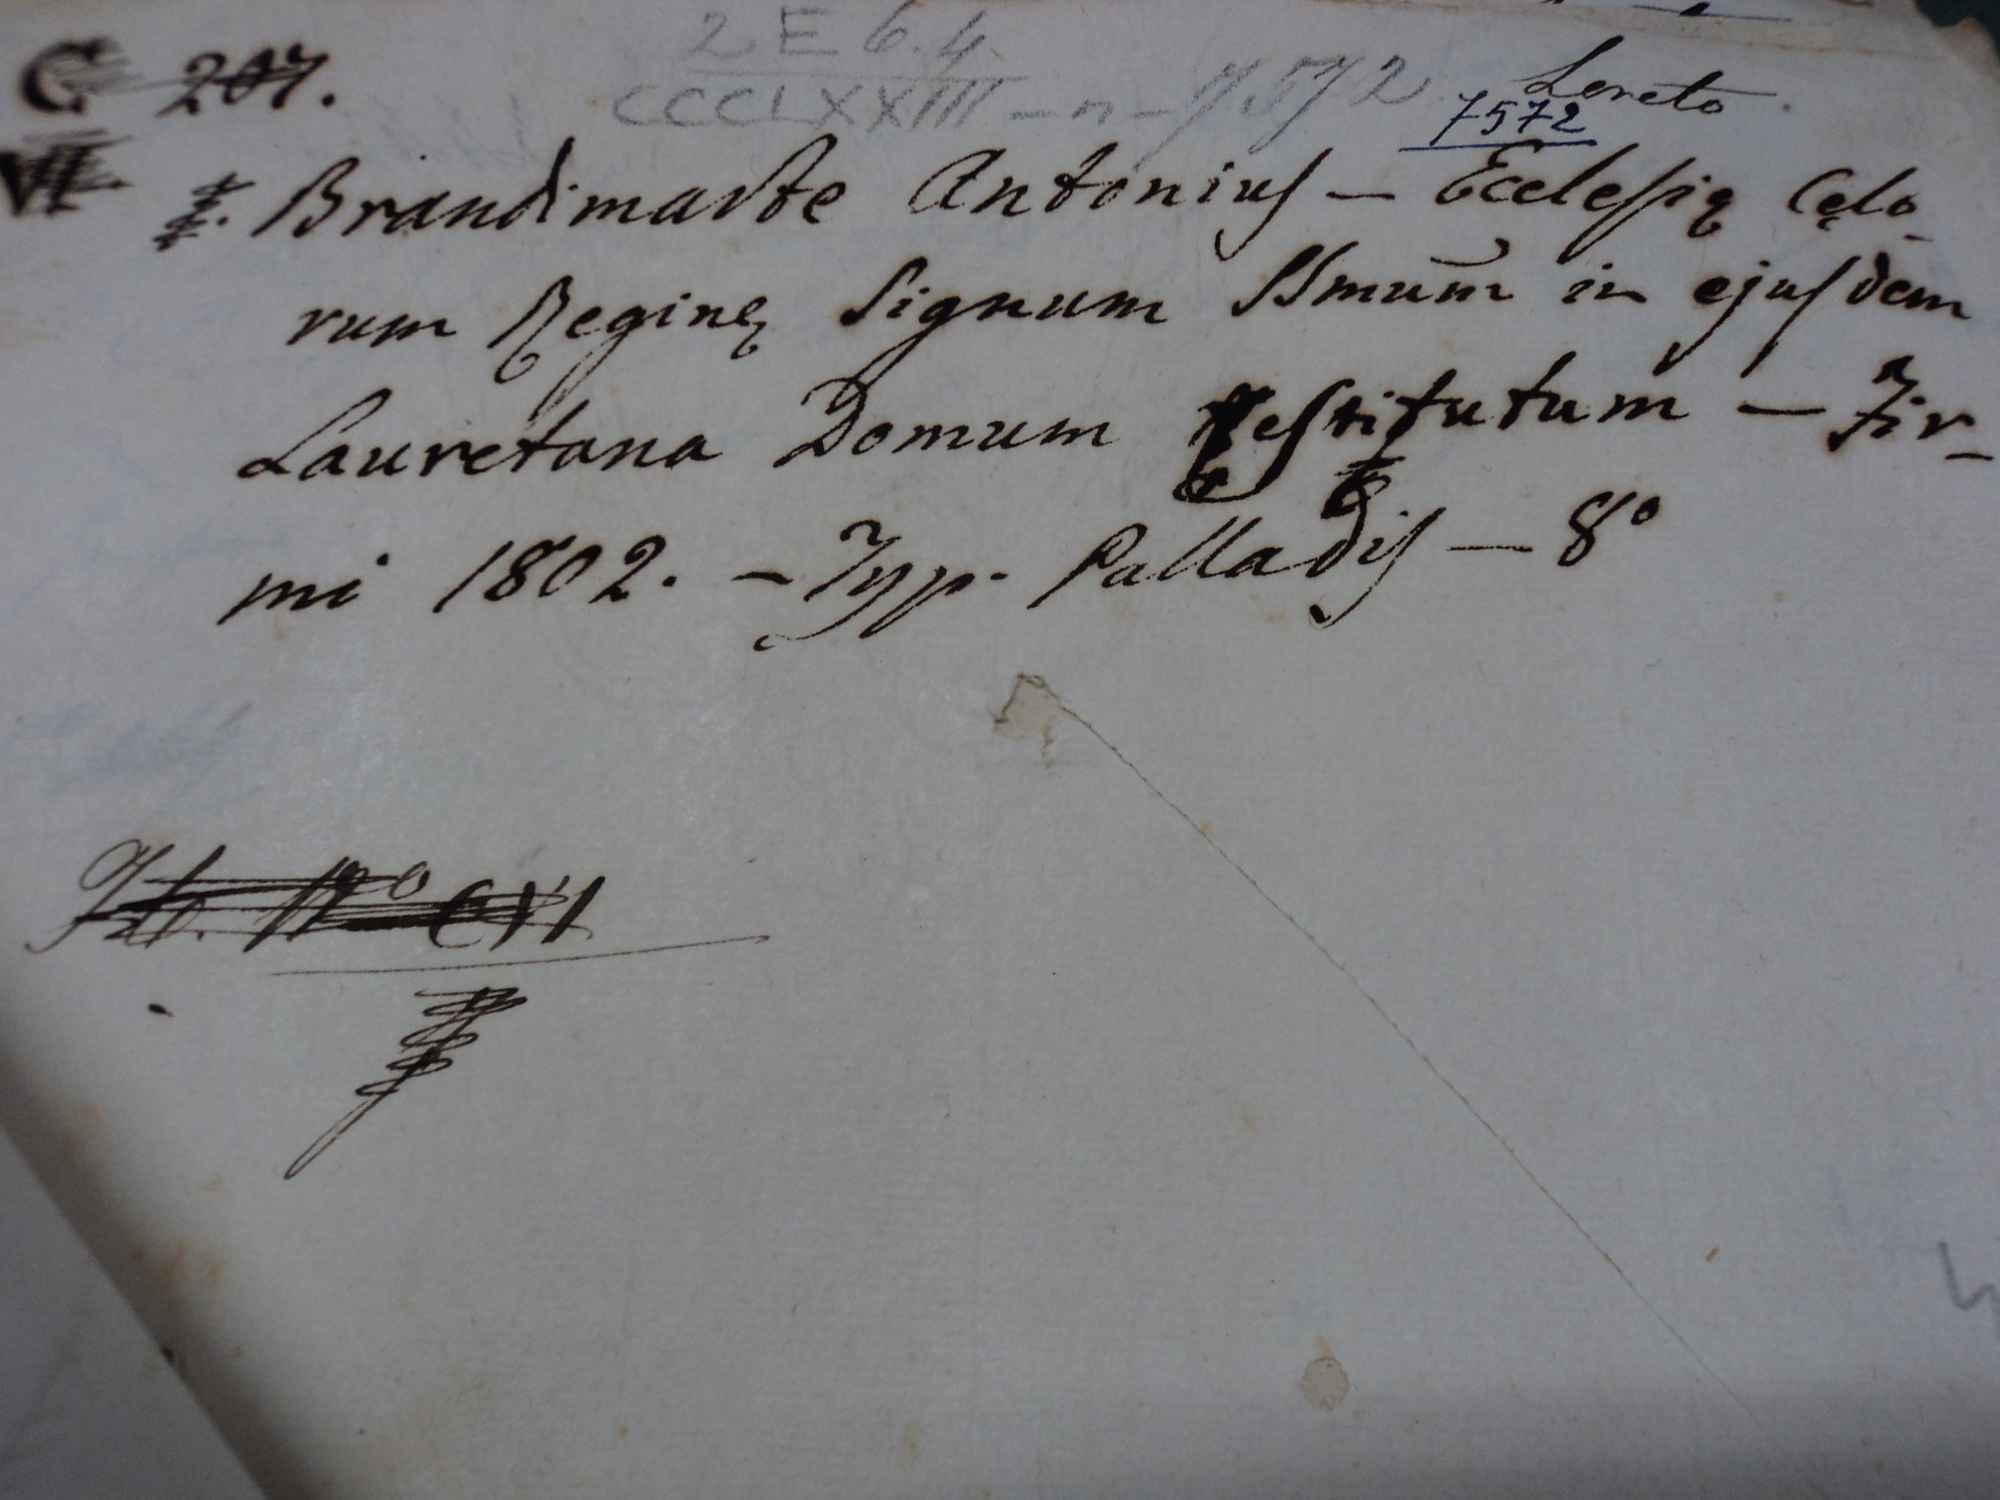 2 E 6.4.
G 207.
CCCLXXIII – n – 7572 Loreto.
7572
VI. Brandimarte Antonius – Ecclesię Cęlo-
rum Reginę Signum SSmum̃ in ejusdem
Lauretana Domum restitutum – Fir-
mi 1802. – Typ. Palladis – 8º